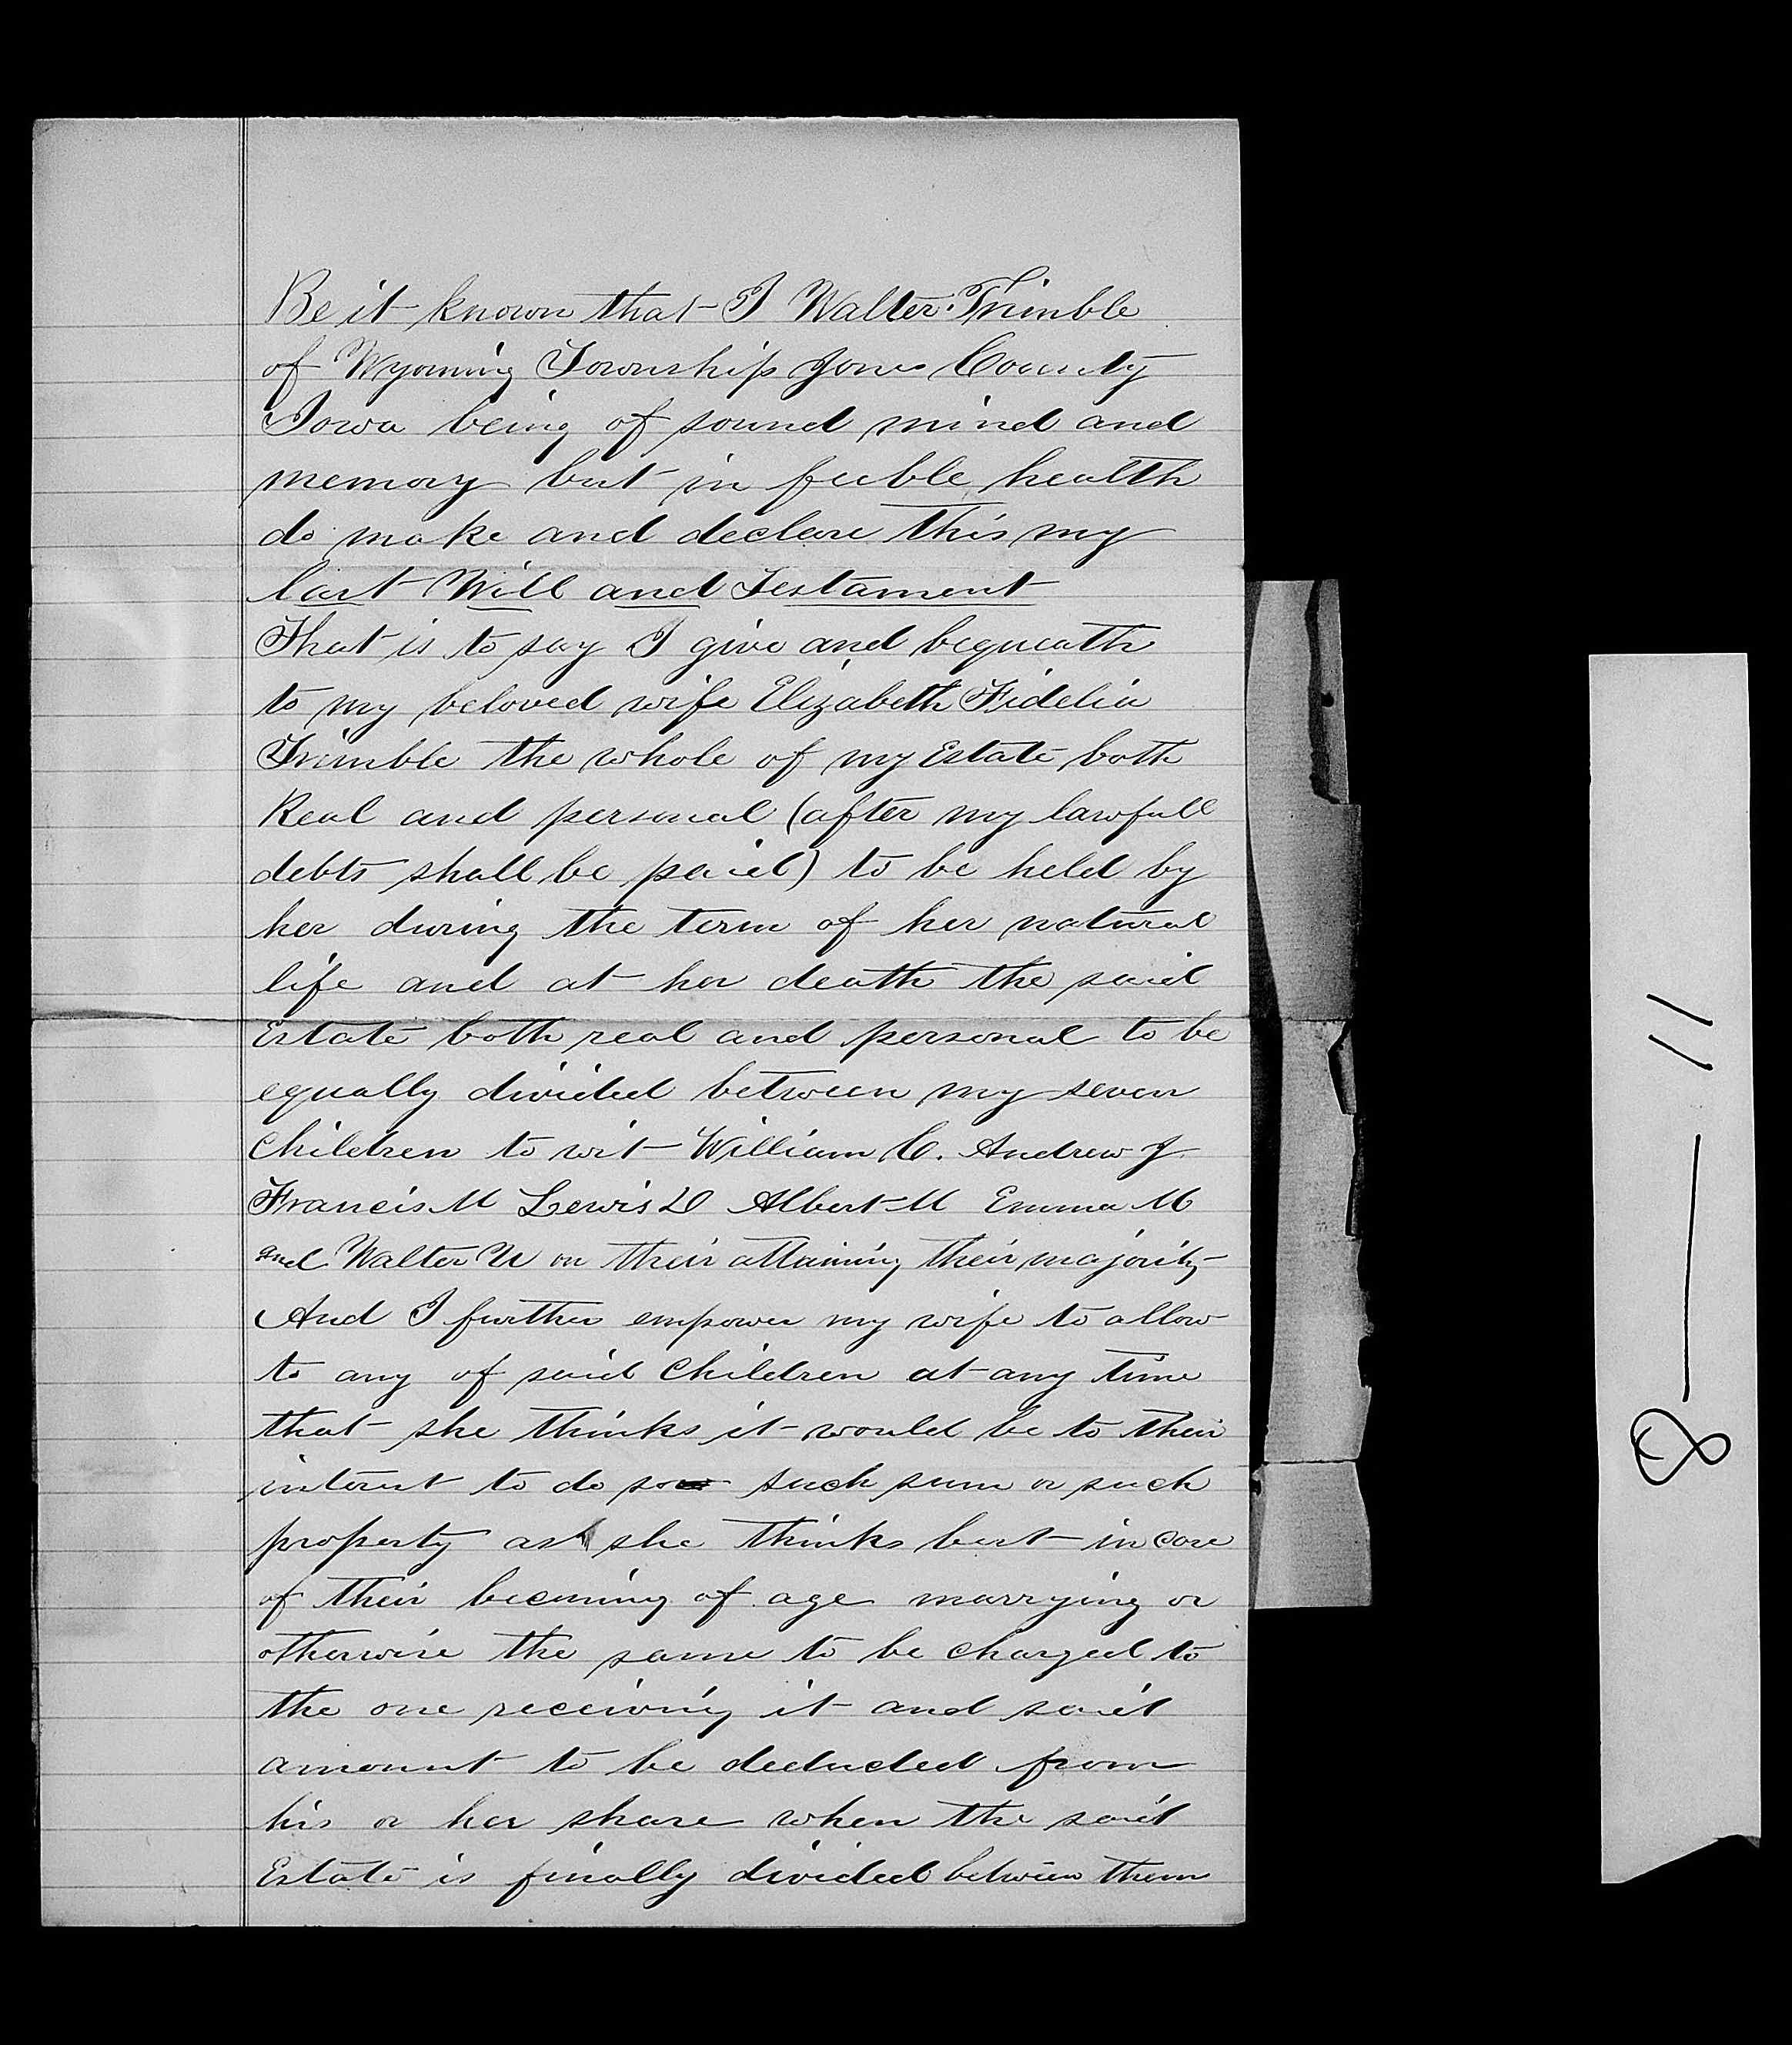 Be it known that I Walter Trimble
of Wyoming Township Jones County
Iowa being of sound mind and
memory but in feeble health
do make and declare this my
last Will and Testament
That is to say I give and bequeath
to my beloved wife Elizabeth Fidelia
Trimble the whole of my Estate both
Real and personal (after my lawfull
debts shall be paid) to be held by
her during the term of her natural
life and at her death the said
Estate both real and personal to be
equally divided between my seven
Children to wit William C. Andrew J
Francis M Lewis D Albert M Emma M
and Walter U on their attaining their majority
And I further empower my wife to allow
to any of said Children at any time
that she thinks it would be to their
interest to do so such sum or such
property as she thinks best in case
of their becoming of age marrying or
otherwise the same to be charged to
the one receiving it and said
amount to be deducted from
his or her share when the said
Estate is finally divided between them
8 — 11